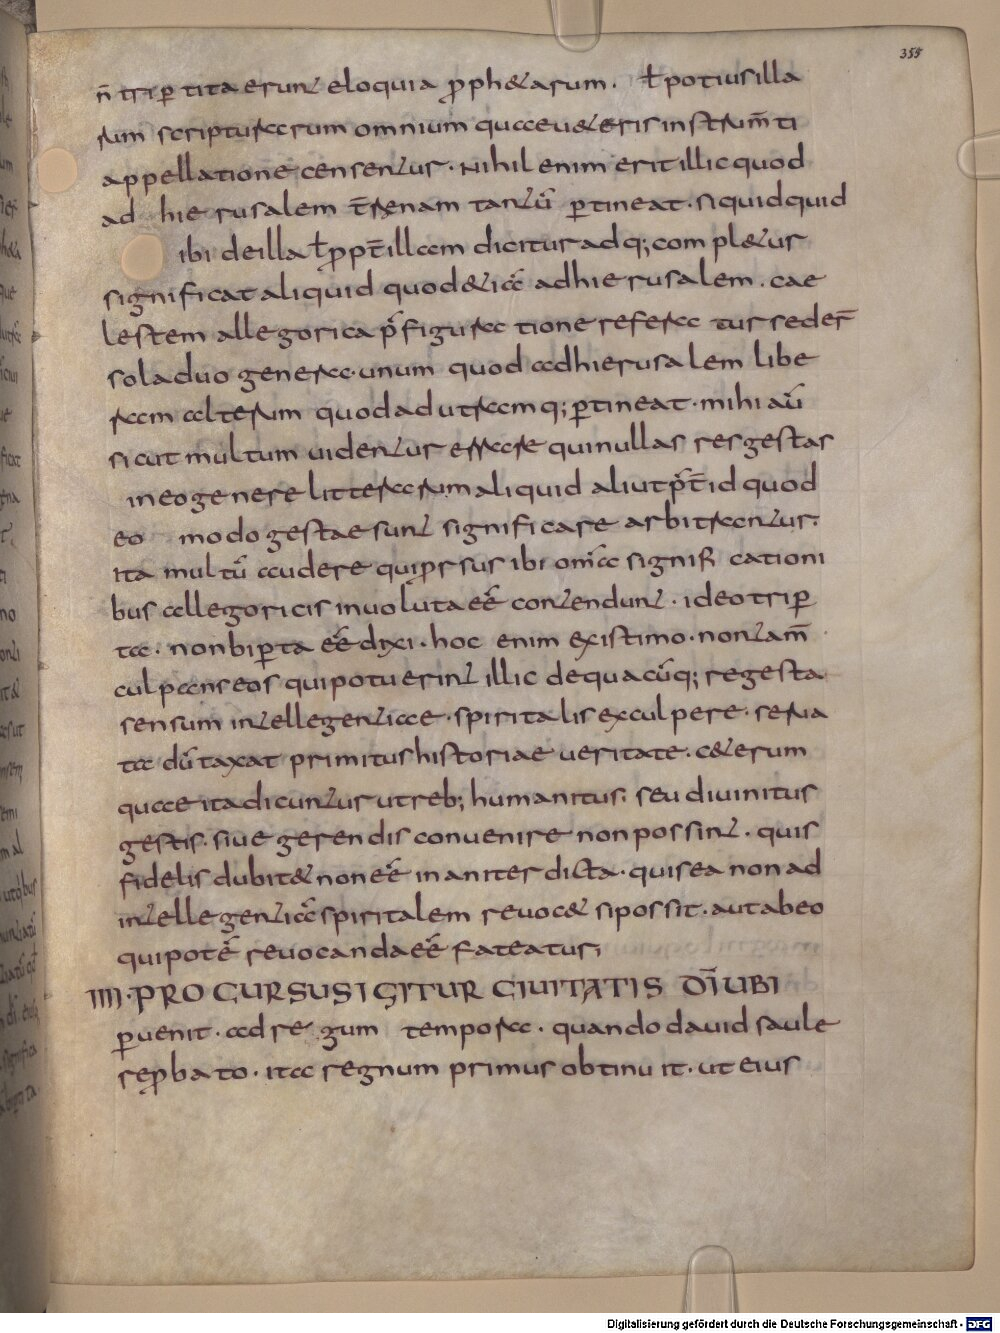 355
n̄ triꝑtita erunt eloquia ꝓph&arum . ł potius illa
rum scripturarum omnium quae u&eris instrum̄ti
appellatione censentur · Nihil enim erit illic quod
ad hierusalem t̄renam tantū ꝑtineat · siquidquid
ibi de illa ł ꝓpt̄ illam dicitur adq; compl&ur
significat aliquid quod &iā ad hierusalem . cae
lestem allegorica p̄figuratione referatur sed er̄
sola duo genera · unum quod ad hierusalem libe
ram alterum quod ad utramq; ꝑtineat · mihi aū
sicut multum uidentur errare qui nullas res gestas
in eo genere litterarum aliquid aliut p̄t̄ id quod
eo modo gestae sunt significare arbitrantur .
ita multū audere qui prorsus ibi om̄a significationi
bus allegoricis inuoluta eē contendunt · ideo triꝑ
ta · non biꝑta eē dixi · hoc enim existimo · non tam̄
culpans eos qui potuerint illic de quacūq; re gesta
sensum intellegentiae · spiritalis exculpere · serua
ta dū taxat primitus historiae ueritate · c&erum
quae ita dicuntur ut reb; humanitus · seu diuinitus
gestis · siue gerendis conuenire non possint · quis
fidelis dubit& non eē inaniter dicta · quis ea non ad
intellegentiā spiritalem reuoc& si possit · aut ab eo
qui potē reuocanda eē fateatur ;
IIII · PROCURSUS IGITUR CIUITATIS D̄I UBI
ꝑuenit · ad regum tempora · quando dauid saule
reꝓbato · ita regnum primus obtinuit · ut eius
Digitalisierung gefördert durch die Deutsche Forschungsgemeinschaft - DFG